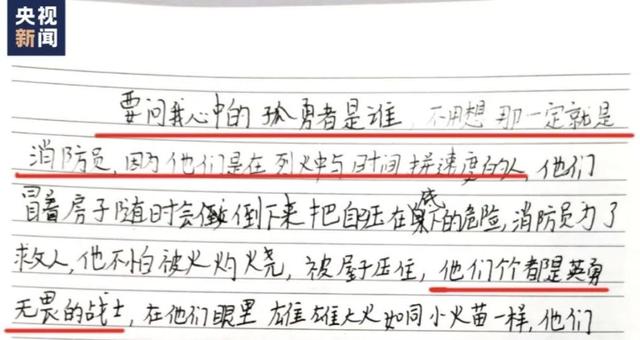 央视
新闻
要问我心中的孤勇者是谁，不用想那一定就是
消防员，因为他们是在烈火中与时间拼速度的人，他们
冒着房子随时会倒下来把自压在底下的危险，消防员为了
救人，他不怕被火灼烧，被屋子压住，他们个个都是英勇
无畏的战士，在他们眼里雄雄大火如同小火苗一样，他们